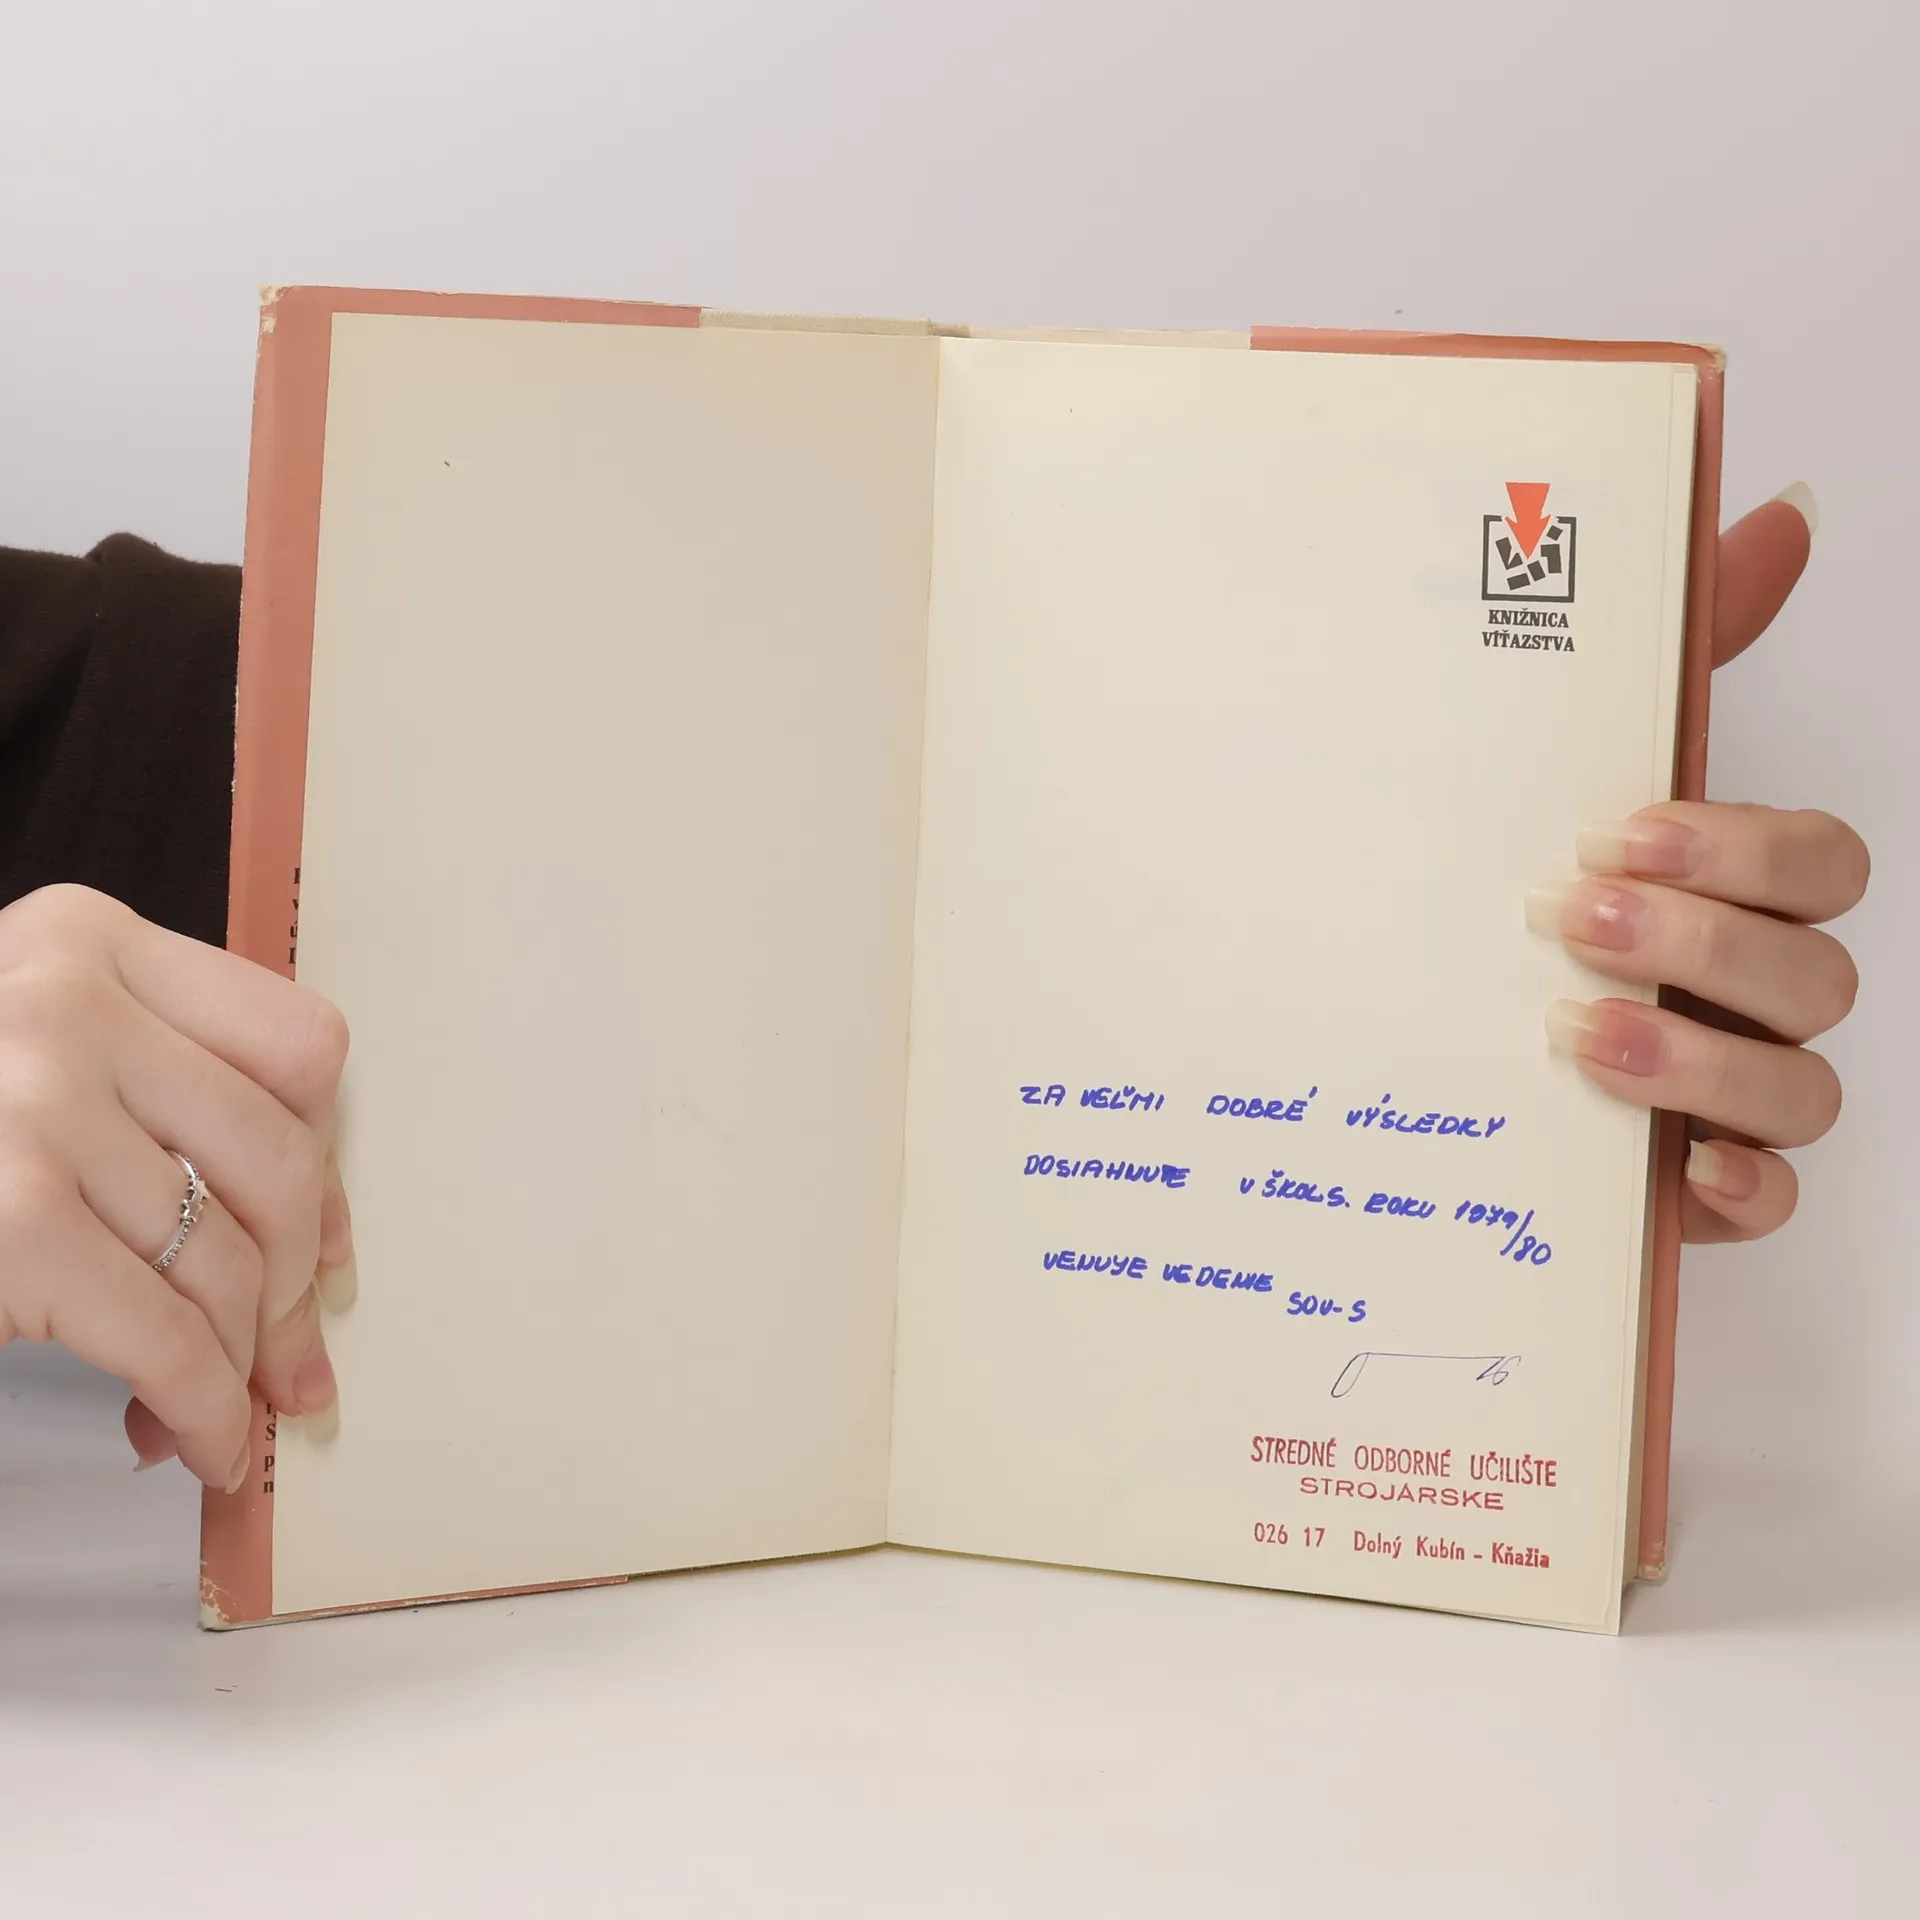 KNIŽNICA
VÍŤAZSTVA
ZA VEĽMI DOBRÉ VÝSLEDKY
DOSIAHNUTE V ŠKOLS. ROKU 1979/80
VENUJE VEDENIE SOU-S
STREDNÉ ODBORNÉ UČILIŠTE
STROJÁRSKE
026 17 Dolný Kubín - Kňažia